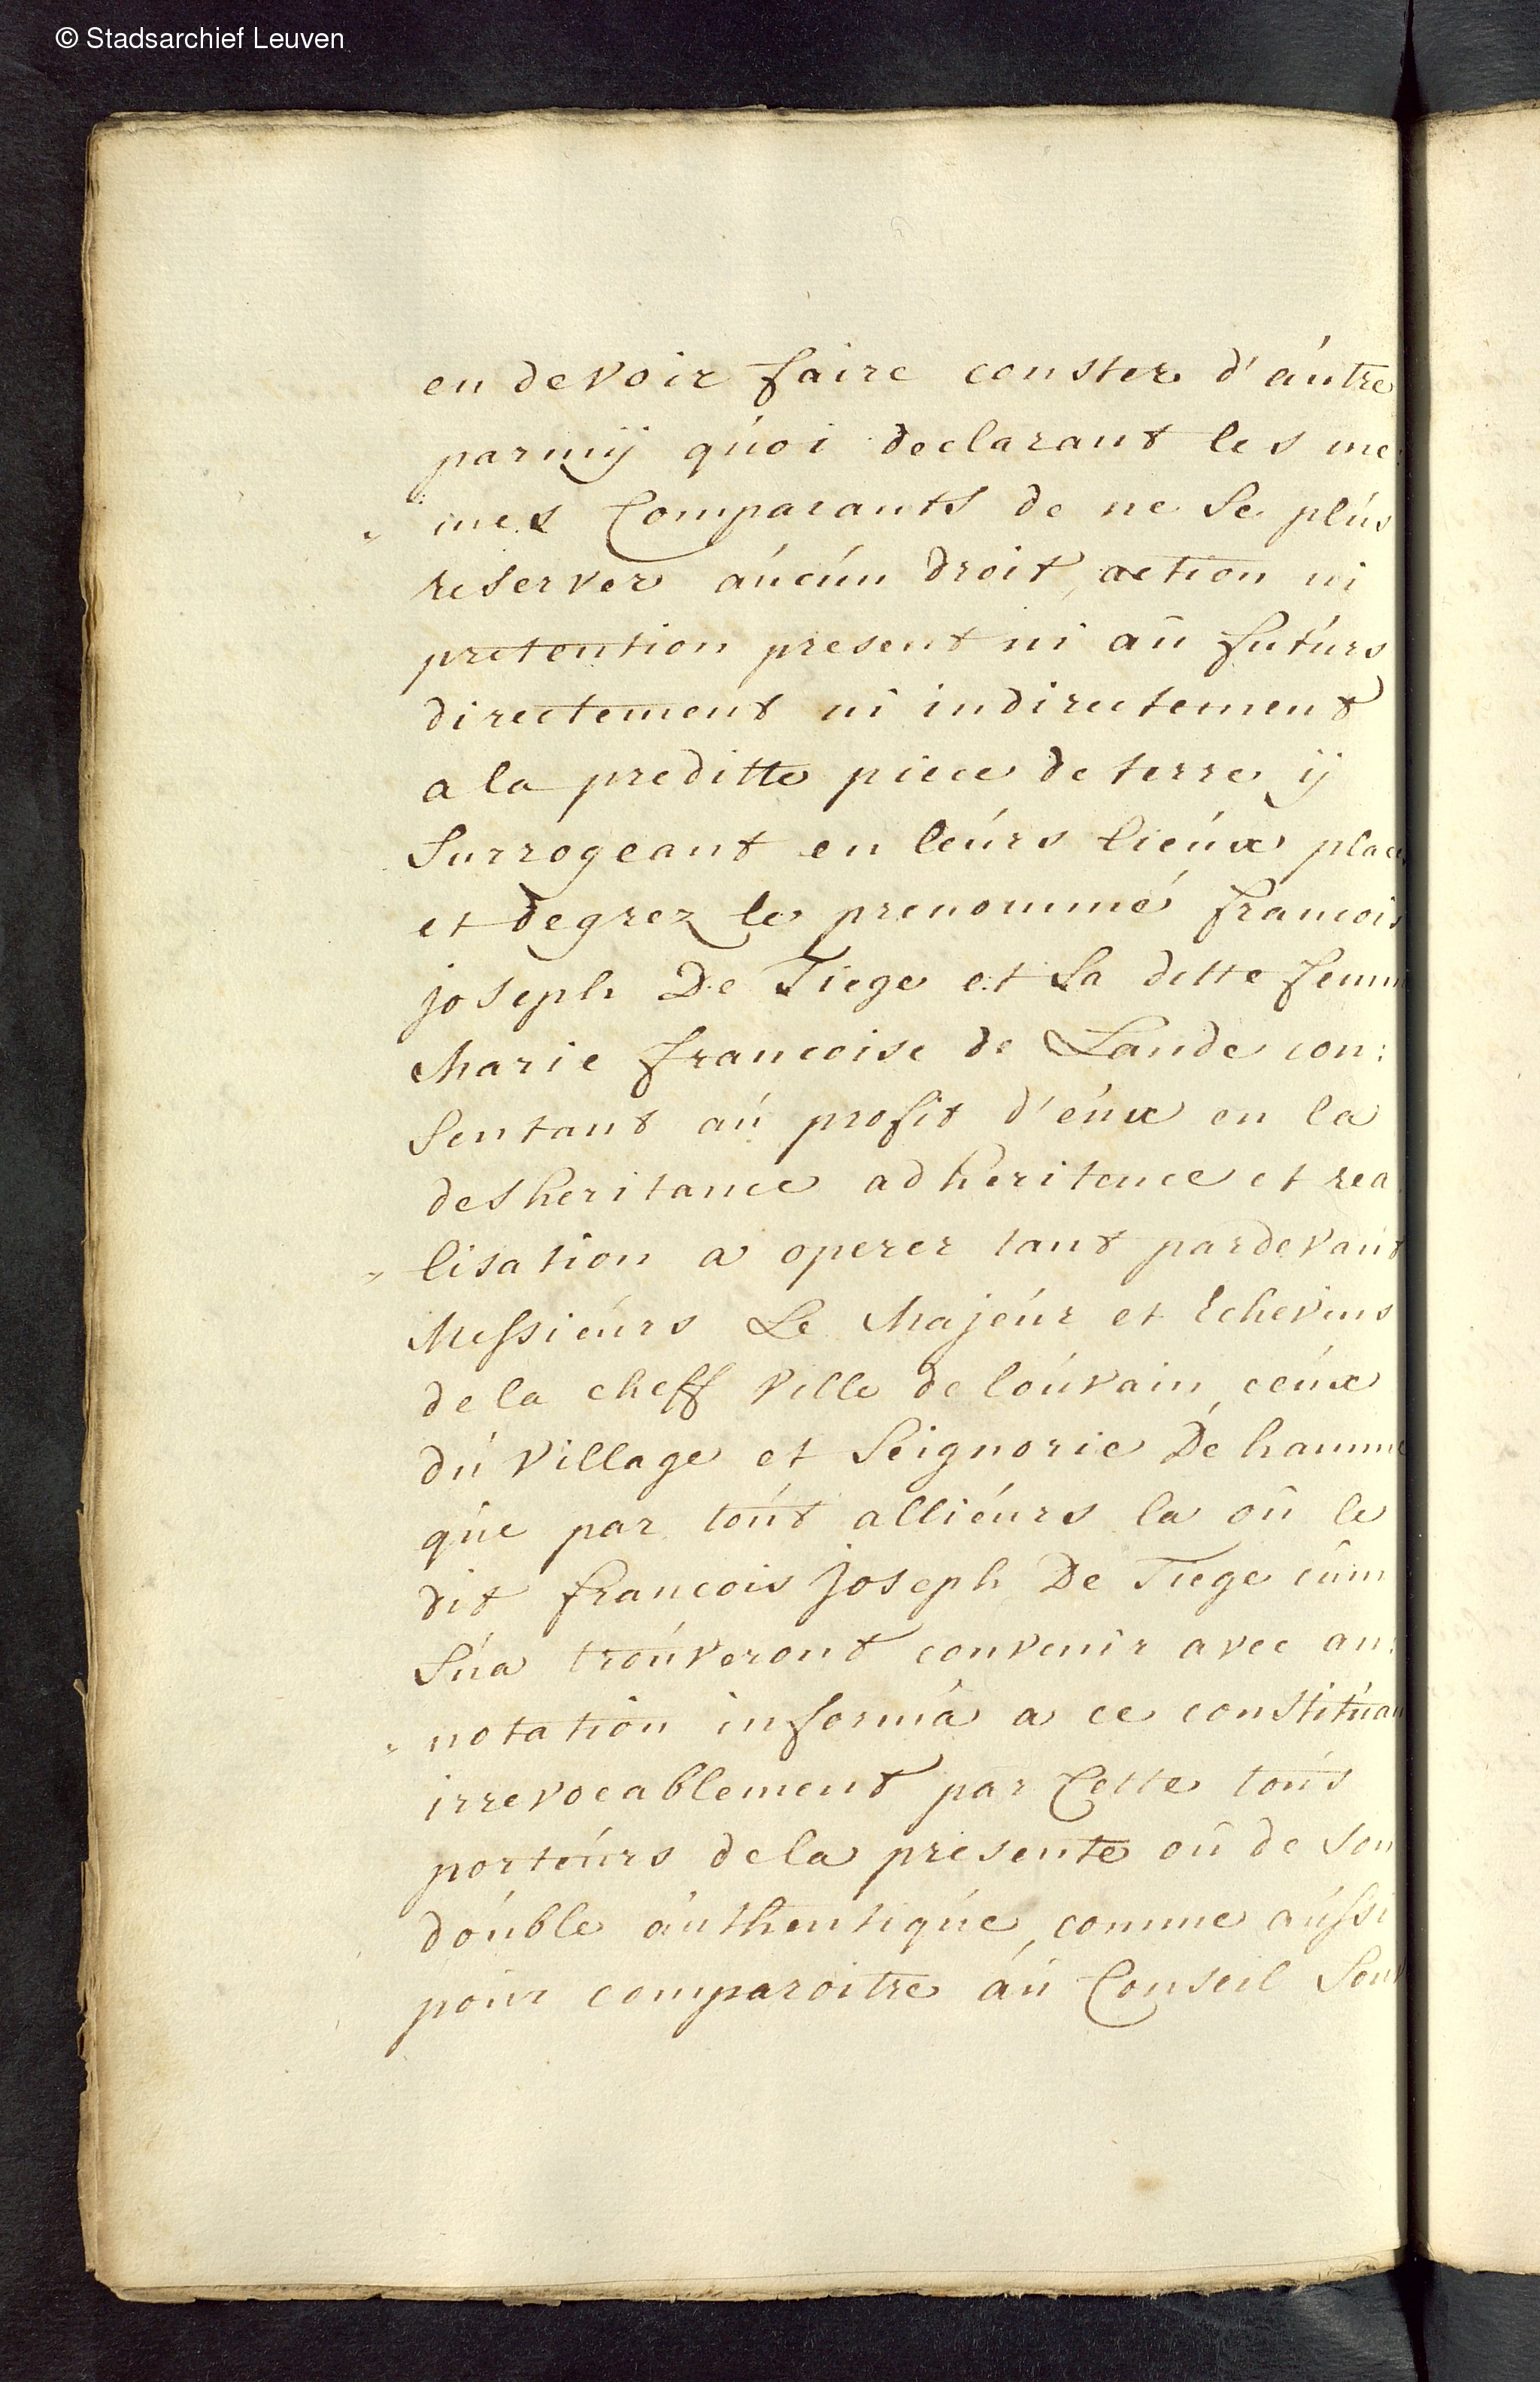 © Stadsarchief Leuven
en devoir faire conster d'autre
parmij quoi declarant les me
mes Comparants de ne se plus
reserver aucun droit, action ni
pretention present ni au futurs
directement ni indirectement
a la preditte piece de terre ij
surrogeant en leurs lieux place
et degrez le prenommé francois
joseph De Tiege et sa ditte femm
Marie francoise de Lande con:
sentant au profit d'eux en la
desheritance adheritence et rea
lisation a operer tant pardevant
Messieurs Le Majeur et Echevins
de la cheff ville de louvain, ceux
du village et seignorie De hamme
que par tout allieurs la ou le
dit francois joseph De Tiege cum
sua trouveront convenir avec an:
notation in forma a ce constituan
irrevocablement par Cette tous
porteurs de la presente ou de son
double authentique, comme aussi
pour comparoitre au Conseil Souv